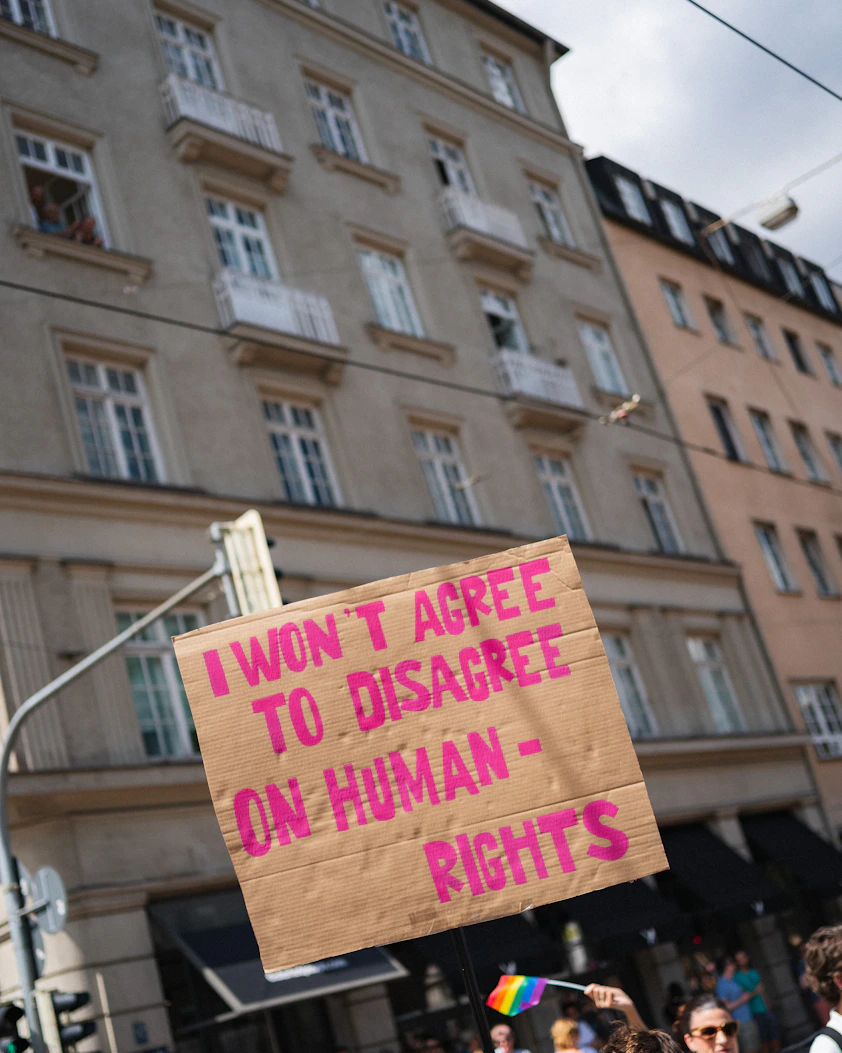 I WON'T AGREE
TO DISAGREE
ON HUMAN-
RIGHTS